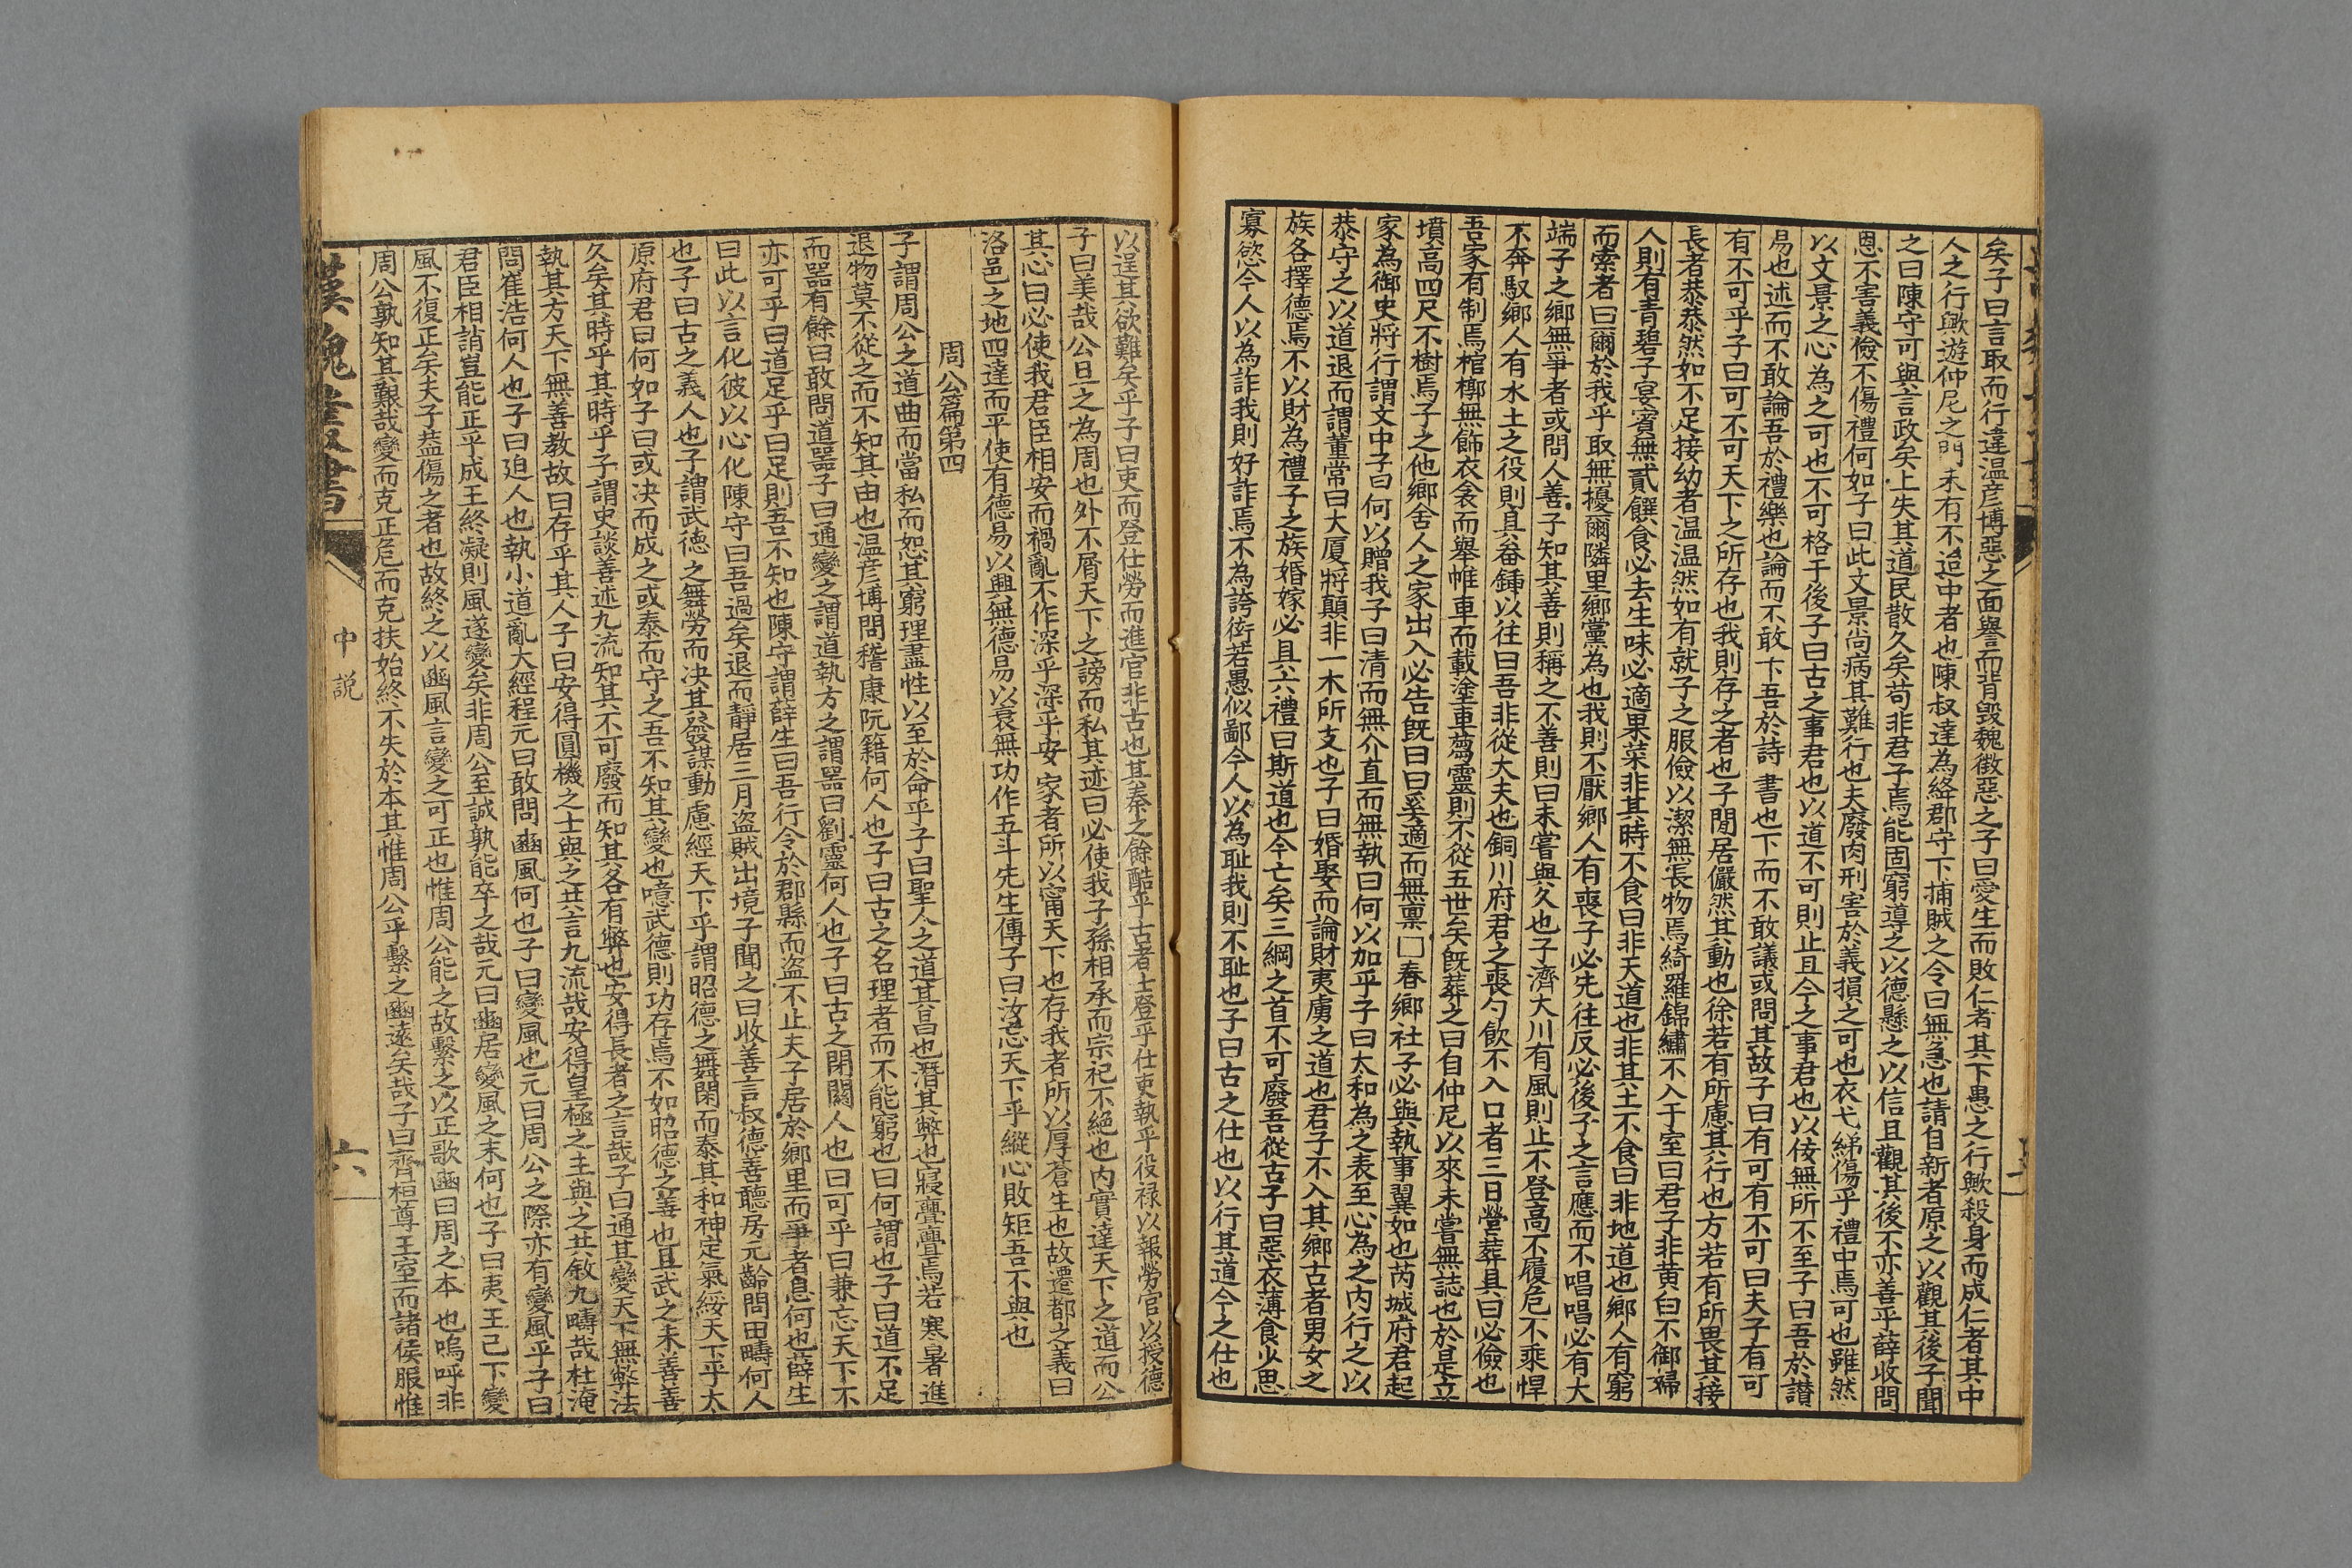 矣子曰言取而行違温彦博惡之面譽而背毀魏徵惡之子曰愛生而敗仁者其下愚之行歟殺身而成仁者其中
人之行歟遊仲尼之門未有不追中者也陳叔達為絳郡守下捕賊之令曰無急也請自新者原之以觀其後子聞
之曰陳守可與言政矣上失其道民散久矣苟非君子焉能固窮導之以德懸之以信且觀其後不亦善乎薛收問
恩不害義儉不傷禮何如子曰此文景尚病其難行也夫廢肉刑害於義損之可也衣弋綈傷乎禮中焉可也雖然
以文景之心為之可也不可格于後子曰古之事君也以道不可則止且今之事君也以佞無所不至子曰吾於讃
易也述而不敢論吾於禮樂也論而不敢下吾於詩書也下而不敢議或問其故子曰有可有不可曰夫子有可
有不可乎子曰可不可天下之所存也我則存之者也子閒居儼然其動也徐若有所慮其行也方若有所畏其接
長者恭恭然如不足接幼者温温然如有就子之服儉以潔無長物焉綺羅錦繡不入于室曰君子非黄白不御婦
人則有青碧子宴賓無貳饌食必去生味必適果菜非其時不食曰非天道也非其土不食曰非地道也鄉人有窮
而索者曰爾於我乎取無擾爾隣里鄉黨為也我則不厭鄉人有喪子必先往反必後子之言應而不唱唱必有大
端子之鄉無爭者或問人善子知其善則稱之不善則曰未嘗與久也子濟大川有風則止不登高不履危不乘悍
不奔馭鄉人有水土之役則具畚鍤以往曰吾非從大夫也銅川府君之喪勺飲不入口者三日營葬具曰必儉也
吾家有制焉棺槨無飾衣衾而舉帷車而載塗車蒭靈則不從五世矣既葬之曰自仲尼以來未嘗無誌也於是立
墳高四尺不樹焉子之他鄉舍人之家出入必告既曰曰奚適而無禀□春鄉社子必與執事翼如也芮城府君起
家為御史將行謂文中子曰何以贈我子曰清而無介直而無執曰何以加乎子曰太和為之表至心為之内行之以
恭守之以道退而謂董常曰大厦將顛非一木所支也子曰婚娶而論財夷虜之道也君子不入其鄉古者男女之
族各擇德焉不以財為禮子之族婚嫁必具六禮曰斯道也今亡矣三綱之首不可廢吾從古子曰惡衣薄食少思
寡慾今人以為詐我則好詐焉不為誇衒若愚似鄙今人以為耻我則不耻也子曰古之仕也以行其道今之仕也
以逞其欲難矣乎子曰吏而登仕勞而進官非古也其秦之餘酷乎古者士登乎仕吏執乎役禄以報勞官以授德
子曰美哉公旦之為周也外不屑天下之謗而私其迹曰必使我子孫相承而宗祀不絶也内實達天下之道而公
其心曰必使我君臣相安而禍亂不作深乎深乎安家者所以甯天下也存我者所以厚蒼生也故遷都之義曰
洛邑之地四達而平使有德易以興無德易以衰無功作五斗先生傳子曰汝忘天下乎縱心敗矩吾不與也
周公篇第四
子謂周公之道曲而當私而恕其窮理盡性以至於命乎子曰聖人之道其昌也潛其弊也寢亹亹焉若寒暑進
退物莫不從之而不知其由也温彦博問嵇康阮籍何人也子曰古之名理者而不能窮也曰何謂也子曰道不足
而器有餘曰敢問道器子曰通變之謂道執方之謂器曰劉靈何人也子曰古之閉關人也曰可乎曰兼忘天下不
亦可乎曰道足乎曰足則吾不知也陳守謂薛生曰吾行令於郡縣而盗不止夫子居於鄉里而爭者息何也薛生
曰此以言化彼以心化陳守曰吾過矣退而靜居三月盗賊出境子聞之曰收善言叔德善聽房元齡問田疇何人
也子曰古之義人也子謂武德之舞勞而决其發謀動慮經天下乎謂昭德之舞閑而泰其和神定氣綏天下乎太
原府君曰何如子曰或决而成之或泰而守之吾不知其變也噫武德則功存焉不如昭德之善也且武之未善善
久矣其時乎其時乎子謂史談善述九流知其不可廢而知其各有弊也安得長者之言哉子曰通其變天下無弊法
執其方天下無善教故曰存乎其人子曰安得圓機之士與之共言九流哉安得皇極之主與之共敘九疇哉杜淹
問崔浩何人也子曰迫人也執小道亂大經程元曰敢問豳風何也子曰變風也元曰周公之際亦有變風乎子曰
君臣相誚豈能正乎成王終疑則風遂變矣非周公至誠孰能卒之哉元曰豳居變風之末何也子曰夷王已下變
風不復正矣夫子葢傷之者也故終之以豳風言變之可正也惟周公能之故繫之以正歌豳曰周之本也嗚呼非
周公孰知其艱哉變而克正危而克扶始終不失於本其惟周公乎繫之豳遠矣哉子曰齊桓尊王室而諸侯服惟
漢魏叢書
中説
六